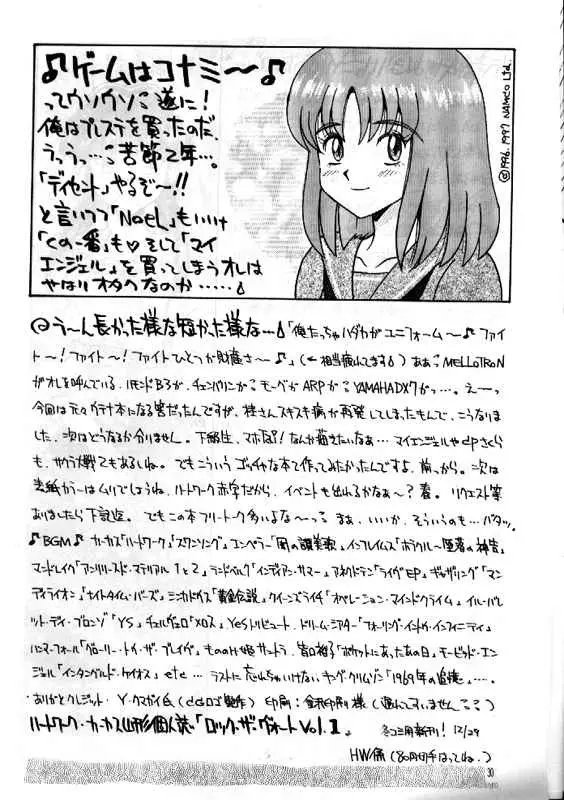 ♪ゲームはコナミ〜♪
ってウソウソ 遂に!
俺はプレステを買ったのだ
うっうっ… 苦節2年…。
「ディセント」やるぞ〜!!
と言いつつ「NoeL」もいいけ
「くの一番」も♡そして「マイ
エンジェル」を買ってしまうオレは
やはりオタクなのか……
©1996, 1997 NAMCO Ltd.
@う〜ん長かった様な短かった様な…「俺たっちゃハダカがユニフォーム〜 ファイ
ト〜!ファイト〜!ファイトひとつが財産さ〜♪」(←相当疲れてます) ああ MELLOTRON
がオレを呼んでいる。ハモンドB3が、チェンバリンが モーグが ARPが YAMAHA DX7がっ…。えーっ
今回は元々グラナ本になる筈だったんですが、桂さんスキスキ病が再発してしまったもんで、こうなりま
した、次はどうなるか分りません。下級生、マホ なんか描きたいなぁ… マイエンジェルやdpさくら
も、サクラ大戦てもあるしね。でもこういうゴッチャな本て作ってみたかったんですよ、前っから。次は
表紙カラーはムリでしょうね、ハートワーク赤字だから、イベントも出れるかなぁ〜?春。リクエスト等
ありましたら下記迄。でもこの本フリートーク多いよな〜っ まぁ、いいか、そういうのも…バタッ。
♪BGM♪ カーカス「ハートワーク」「スワンソング」エンペラー「闇の讃美歌」インフレイムス「
マンドレイク「アンリリースド・マテリアル1と2」ランドベルク「インディアン・サマー」アネクドテン「ライヴEP」ギャザリング「マン
ディライオン」「ナイトタイム・バーズ」ミンカドゲス「黄金伝説」クイーンズライチ「オペレーション・マインドクライム」イル・バレ
ット・ディ・ブロンゾ「YS」チェルヴェロ「メロス」YESトリビュート ドリーム・シアター「フォーリング・イントゥ・インフィニティ」
ハンマーフォール「グローリー・トゥ・ザ・ブレイヴ」もののけ姫サントラ 谷口裕子「ポケットにあったあの日」モービッド・エン
ジェル「インタングルド・ケイオス」etc… ラストに忘れちゃいけないキング・クリムゾン「1969年の追憶」….
ありがとクレジット・Y・クマガイ氏(ロゴ製作) 印刷: 金沢印刷様 (遅れてすいません)
ハートワーク・カーカス山形個人誌「ロック・ザ・ヴォートVol.1」 冬コミ用新刊! 12/29
HW係(80円切手はってね。)
30